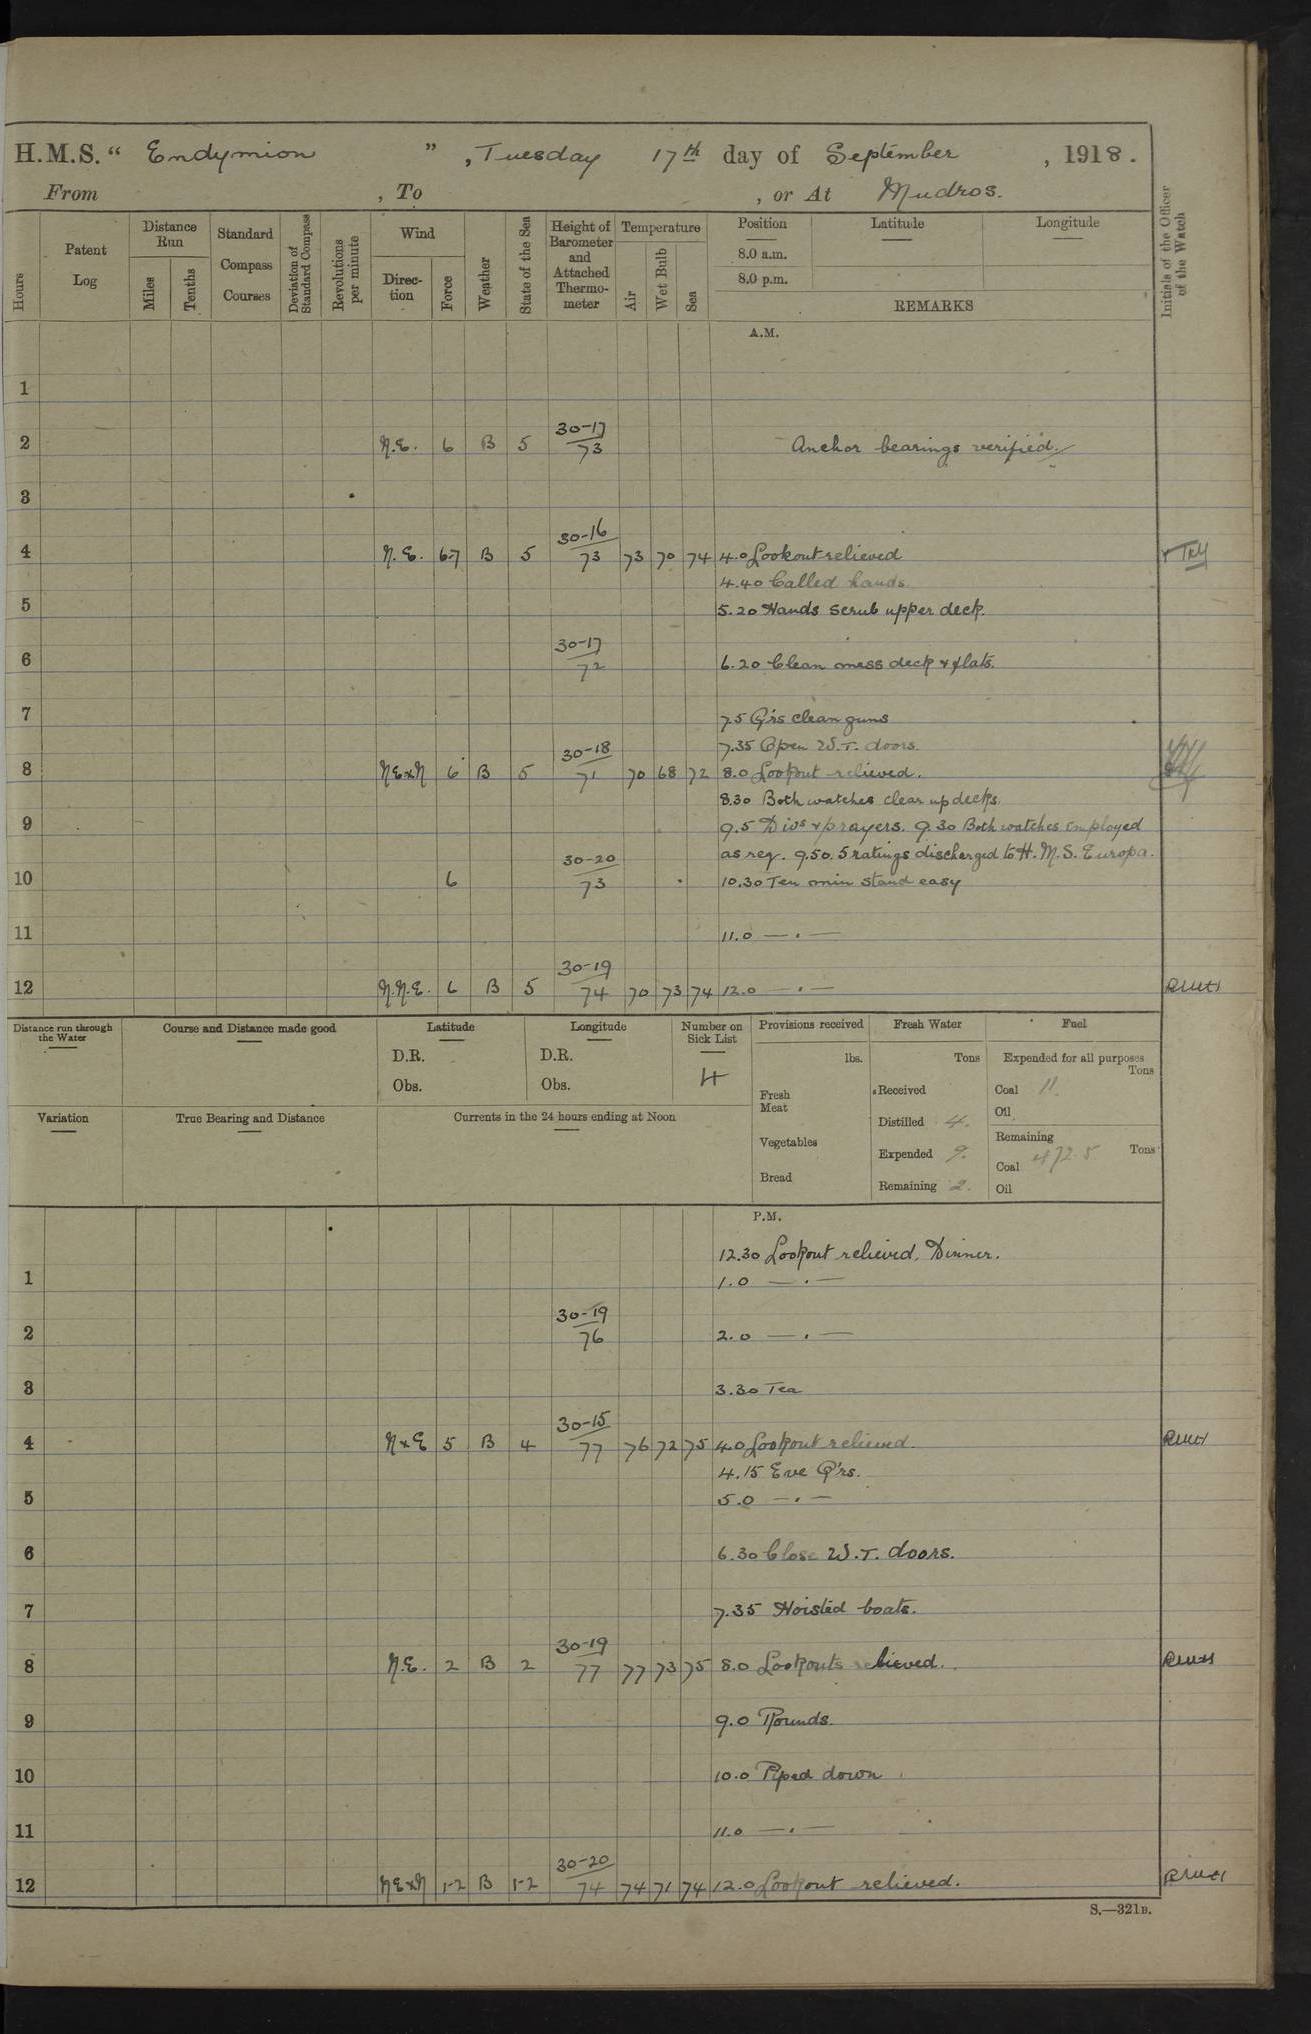 H.M.S. “ Endymion ” , Tuesday 17th day of September , 1918.
From , To , or At Mudros.
Hours
Patent Log
Distance Run
Miles
Tenths
Standard Compass Courses
Deviation of Standard Compass
Revolutions per minute
Wind
Direction
Force
Weather
State of the Sea
Height of Barometer and Attached Thermometer
Temperature
Air
Wet Bulb
Sea
Position
8.0 a.m.
8.0 p.m.
Latitude
Longitude
REMARKS
Initials of the Officer of the Watch
A.M.
1
2 N.E. 6 B 5 30-17/73 Anchor bearings verified.
3
4 N.E. 6-7 B 5 30-16/73 73 70 74 4.0 Lookout relieved
4.40 Called hands.
5 5.20 Hands scrub upper deck.
6 30-17/72 6.20 Clean mess deck & flats.
7 7.5 Q'rs clean guns
7.35 Open W.T. doors.
8 NExN 6 B 5 30-18/71 70 68 72 8.0 Lookout relieved.
8.30 Both watches clear up decks.
9 9.5 Divs & prayers. 9.30 Both watches employed
as req. 9.50. 5 ratings discharged to H.M.S. Europa.
10 6 30-20/73 10.30 Ten min stand easy
11 11.0 — . —
12 N.N.E. 6 B 5 30-19/74 70 73 74 12.0 — . —
Distance run through the Water
Course and Distance made good
Latitude
D.R.
Obs.
Longitude
D.R.
Obs.
Number on Sick List
4
Provisions received
lbs.
Fresh Meat
Vegetables
Bread
Fresh Water
Tons
Received
Distilled 4.
Expended 9.
Remaining 2.
Fuel
Expended for all purposes
Tons
Coal 11.
Oil
Remaining
Tons
Coal 472.5
Oil
Variation
True Bearing and Distance
Currents in the 24 hours ending at Noon
P.M.
12.30 Lookout relieved. Dinner.
1 1.0 — . —
2 30-19/76 2.0 — . —
3 3.30 Tea
4 NxE 5 B 4 30-15/77 76 72 75 4.0 Lookout relieved.
4.15 Eve Q'rs.
5 5.0 — . —
6 6.30 Close W.T. doors.
7 7.35 Hoisted boats.
8 N.E. 2 B 2 30-19/77 77 73 75 8.0 Lookouts relieved.
9 9.0 Rounds.
10 10.0 Piped down
11 11.0 — . —
12 NExN 1-2 B 1-2 30-20/74 74 71 74 12.0 Lookout relieved.
S.—321B.